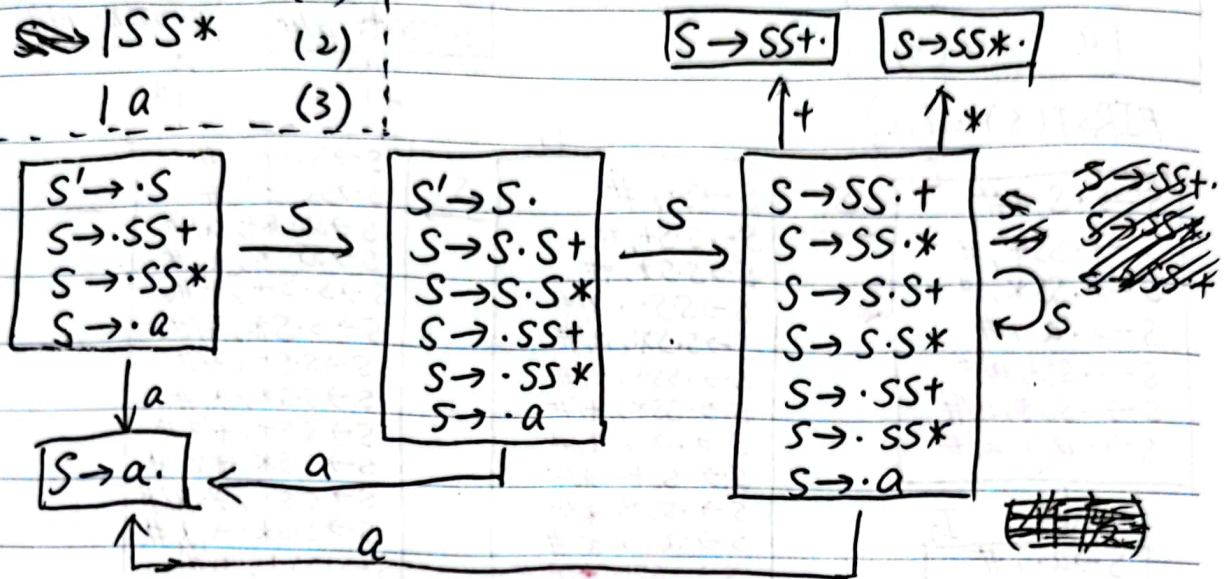 | SS* (2)
| a (3)
S → SS+·
S → SS*·
+
*
S' → ·S
S → ·SS+
S → ·SS*
S → ·a
S
S' → S·
S → S·S+
S → S·S*
S → ·SS+
S → ·SS*
S → ·a
S
S → SS·+
S → SS·*
S → S·S+
S → S·S*
S → ·SS+
S → ·SS*
S → ·a
S
a
S → a·
a
a